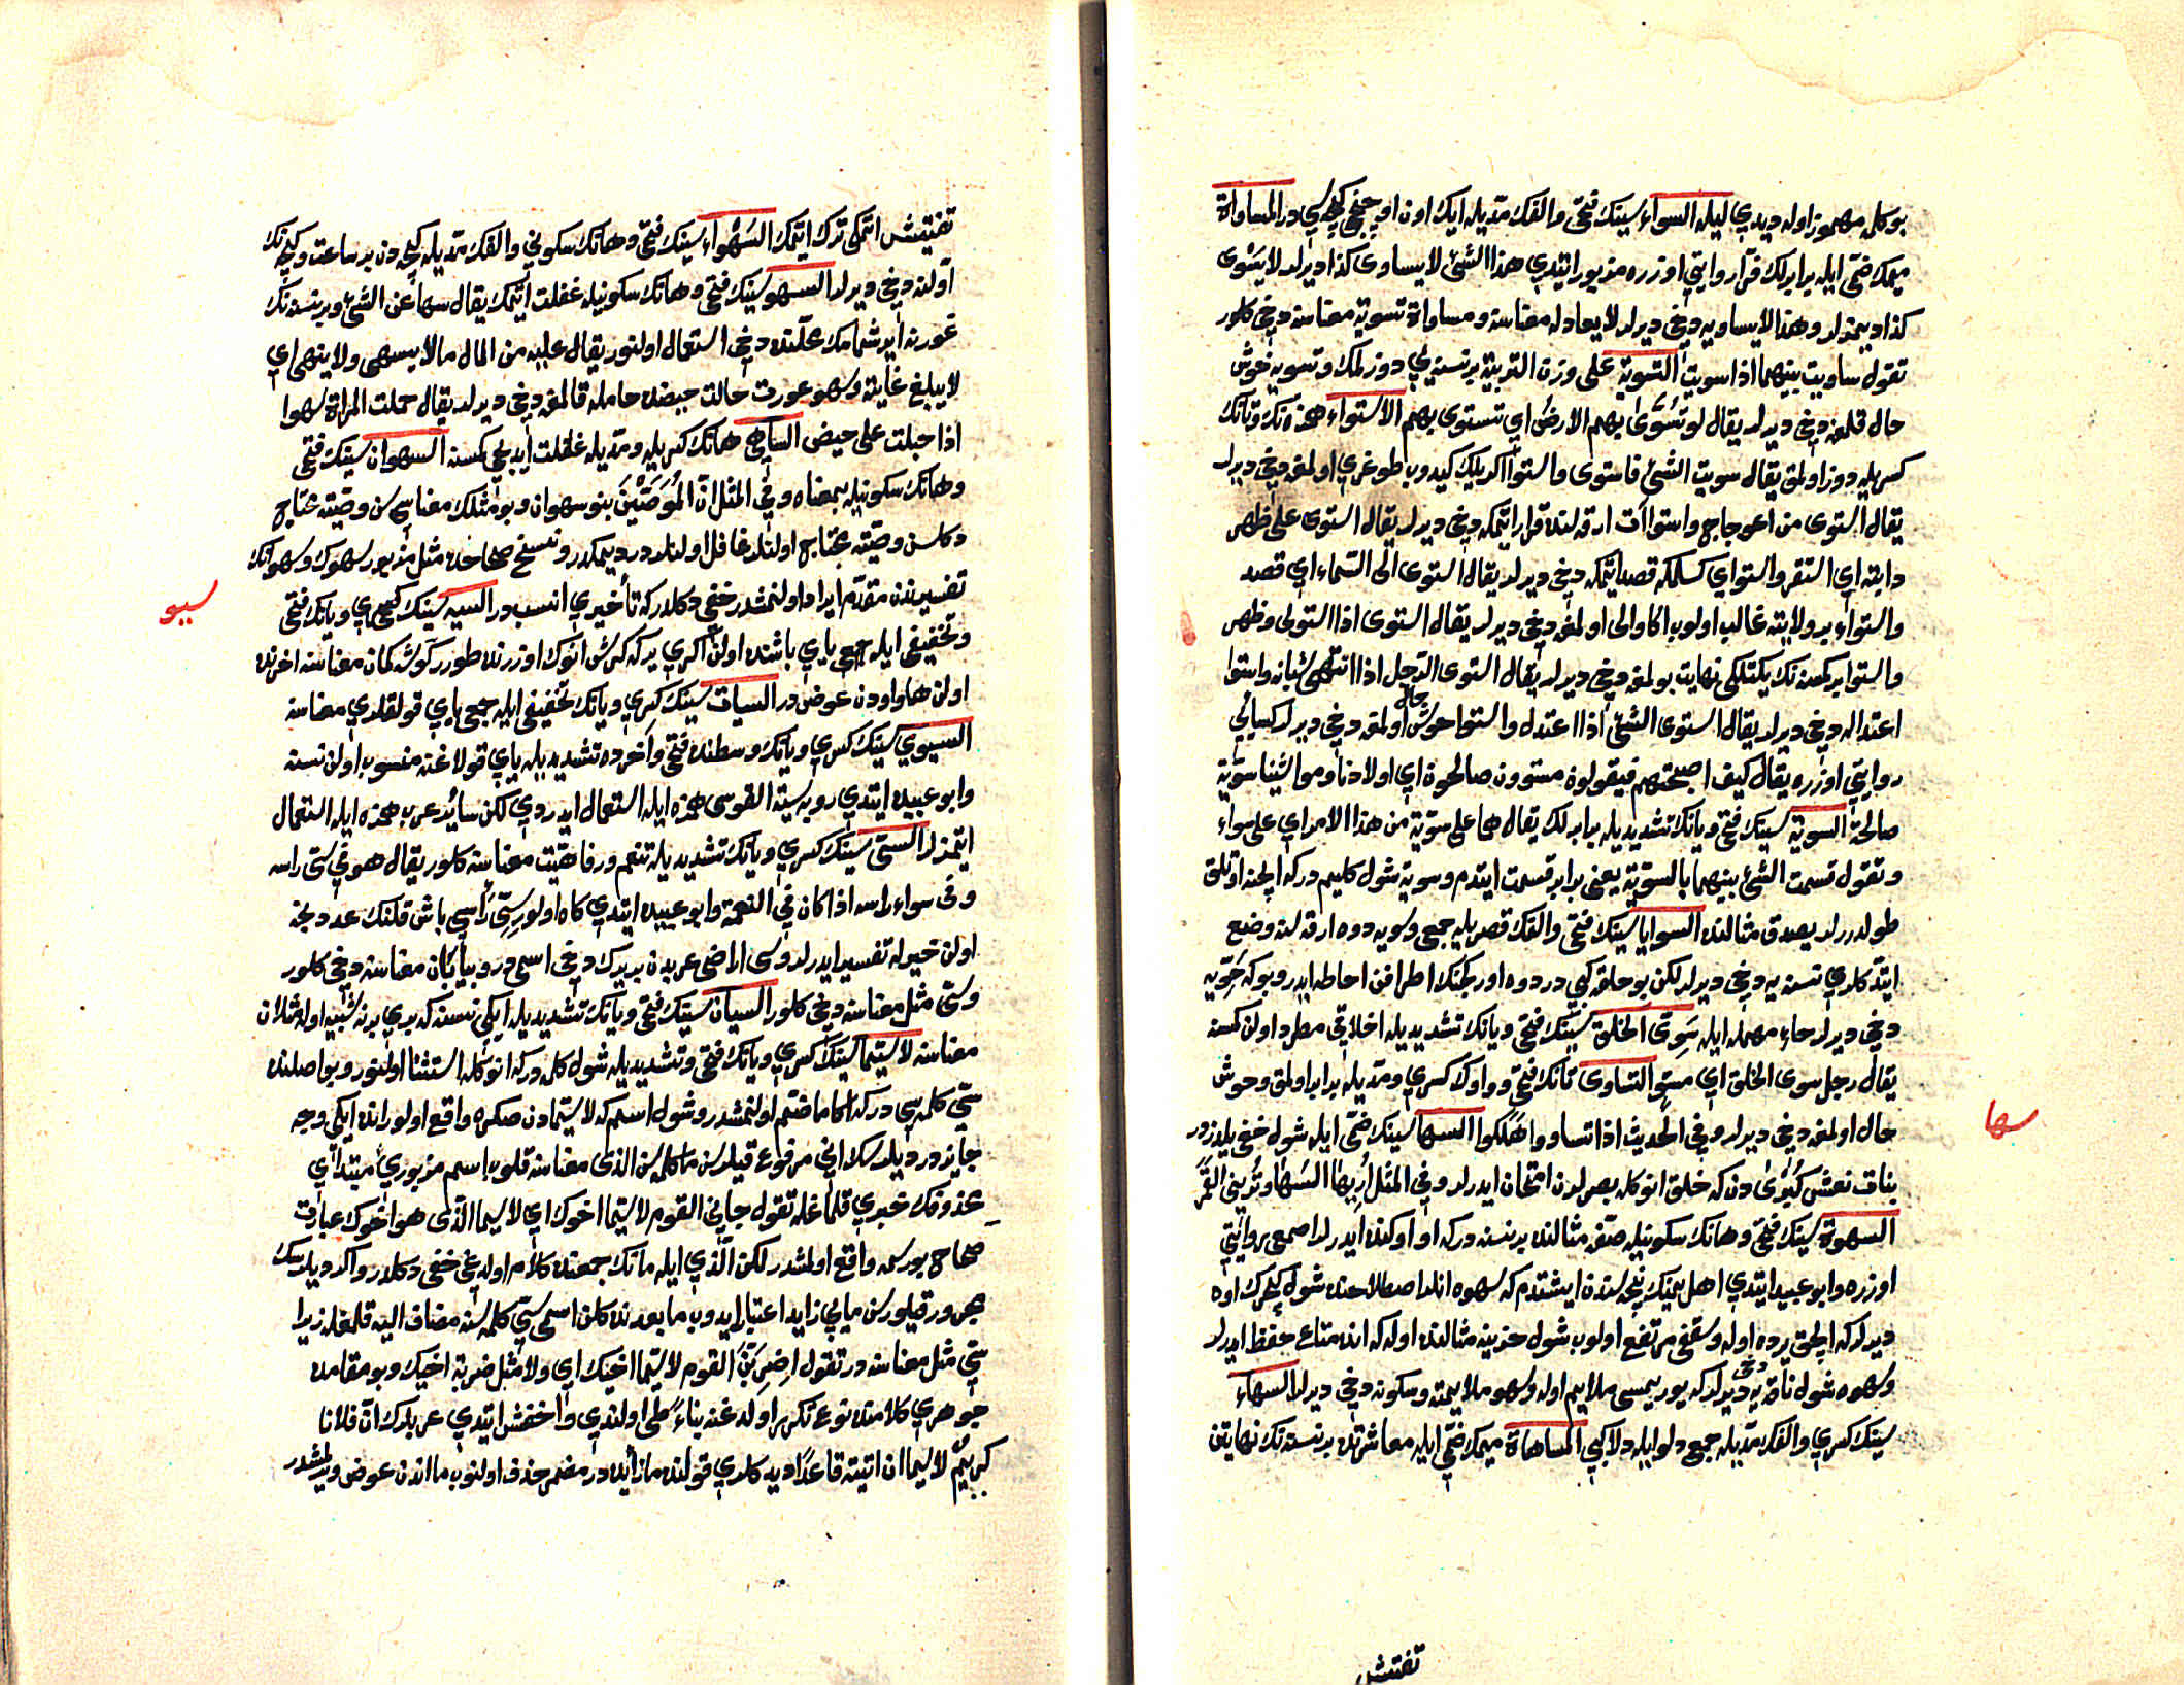 بو كلمه مهموز اوله ديدي ليلة السواء سينك فتحى والفك مديله ايك اون اوچنجى كيجه سي در المساواة
ميمك ضمى ايله برابرلك فرا روايتي اوزره مزبور ايتدي هذا الشئ لا يساوى كذا ديرلر لا يسوى
كذا ديمزلر وهذا لا يساويه دخي ديرلر لا يعادله معناسنه ومساواة تسوية معناسنه دخي كلور
تقول ساويت بينهما اذا سويت التسوية على وزن التربية بر نسنه يي دوزلمك وتسويه خوش
حال قلمغه دخي ديرلر يقال لو تسوى بهم الارض اي تستوى بهم الاستواء همزه نك وتانك
كسريله دوز اولمق يقال سويت الشئ فاستوى واستوا اكريلك كيدوب طوغري اولمغه دخي ديرلر
يقال استوى من اعوجاج واستوا آت ارقه لنده قرار ايتمكه دخي ديرلر يقال استوى على ظهر
دابته اي استقر واستواي كسلمكه قصد ايتمكه دخي ديرلر يقال استوى الى السماء اي قصد
واستواء بر ولايته غالب اولوب اكا والى اولمغه دخي ديرلر يقال استوى اذا استولى وظهر
واستوا بر كمسه نك يكتلكى نهايت بولمغه دخي ديرلر يقال استوى الرجل اذا انتهى شبابه واستوا
اعتداله دخي ديرلر يقال استوى الشئ اذا اعتدل واستوا خوش حال اولمغه دخي ديرلر كسائي
روايتي اوزره يقال كيف اصبحتم فيقولون مستوون صالحون اي اولادنا ومواشينا سوية
صالحة السوية سينك فتحى ويانك تشديديله برابرلك يقال هما على سوية من هذا الامر اي على سواء
وتقول قسمت الشئ بينهما بالسوية يعنى برابر قسمت ايتدم وسوية شول كليم در كه ايچنه اوتلق
طولدررلر بصدق مثالنده السوايا سينك فتحى والفك قصريله جمعى وسويه دوه ارقه سنه وضع
ايتدكلري نسنه يه دخي ديرلر لكن بو حلقه كبي در دوه اوركجنك اطرافن احاطه ايدر وبوكه حويه
دخي ديرلر حاء مهمله ايله سوى الخلق سينك فتحى ويانك تشديديله اخلاقي مطرد اولن كمسه
يقال رجل سوى الخلق اي مستو التساوى تانك فتحى وواوك كسري ومديله برابر اولمق وخوش
حال اولمغه دخي ديرلر وفي الحديث اذا تساووا هلكوا السها سينك ضمى ايله شول خفي يلدزدر
بنات نعش كبرى دن كه خلق انوكله بصرلرن امتحان ايدرلر وفي المثل اريها السها وترينى القمر
السهوة سينك فتحى وهانك سكونيله صفه مثالنده بر نسنه در كه او اوكنده ايدرلر اصمعى روايتي
اوزره وابو عبيد ايتدي اهل يمنك نيجه سندن ايشتدم كه سهوه انلر اصطلاحنده شول كچرك اوه
ديرلر كه ايچى يرده اوله وسقفى مرتفع اولوب شول خزينه مثالنده اوله كه انده متاع حفظ ايدرلر
وسهوه شول ناقه يه دخي ديرلر كه يوريمسى ملايم اوله وسهو ملايمته وسكونه دخي ديرلر السهاء
سينك كسري والفك مديله جمع دلو ايله دلا كبي المساهاة ميمك ضمى ايله معاشرتده بر نسنه نك نهايتن
تفتش
سها
تفتيش اتمكى ترك ايتمك السهواء سينك فتحى وهانك سكوني والفك مديله كيجه دن بر ساعت وكيجه نك
اولنه دخي ديرلر السهو سينك فتحى وهانك سكونيله غفلت ايتمك يقال سها عن الشئ وبر نسنه نك
غورنه ايرشمامك محلنده دخي استعمال اولنور يقال عليه من المال ما لا يسهى ولا ينهى اي
لا يبلغ غايته وسهو عورت حالت حيضده حامله قالمغه دخي ديرلر يقال حملت المراة سهوا
اذا حبلت على حيض الساهي هانك كسريله ومديله غفلت ايديجي كمسنه السهوان سينك فتحى
وهانك سكونيله بمعناه وفي المثل ان الموصين بنو سهوان وبو مثلك معناسي سن وصيته محتاج
دكلسن وصيته محتاج اولنلر غافل اولنلردر ديمكدر ونسخ صحاحده مثل مزبور سهوك وسهوانك
تفسيرندن مقدم ايراد اولنمشدر خفي دكلدر كه تأخيري انسب در السيه سينك كسري ويانك فتحى
وتخفيفى ايله جمعى ياي باشنده اولن اكري يركه كرش انوك اوزرنده طورر كوشه كمان معناسنه اخرنده
اولن ها واودن عوض در السيات سينك كسري ويانك تخفيفى ايله جمعى ياي قولقلري معناسنه
السيوي سينك كسري ويانك وسطنده فتحى واخرده تشديديله ياي قولاغنه منسوب اولن نسنه
وابو عبيده ايتدي روبه سية القوسى همزه ايله استعمال ايدردي لكن سائر عرب همزه ايله استعمال
ايتمزلر السى سينك كسري ويانك تشديديله تنعم ورفاهيت معناسنه كلور يقال هو في سى راسه
وفى سواء راسه اذا كان في النعمة وابو عبيده ايتدي كاه اولور سى راسي باش قلنك عددنجه
اولن خيرله تفسير ايدرلر وسى اراضى عربدن بر يرك دخي اسمى در وبيابان معناسنه دخي كلور
وسى مثل معناسنه دخي كلور السيان سينك فتحى ويانك تشديديله ايكى نسنه كه بري برنه شبيه اوله مثلان
معناسنه لا سيما سينك كسري ويانك فتحى وتشديديله شول كلمه در كه انوكله استثنا اولنور وبو اصلنده
سى كلمه سى در كه اكا ما ضم اولنمشدر وشول اسم كه لا سيما دن صكره واقع اولور انده ايكى وجه
جايزدر ديلرسك اني مرفوع قيلرسن ما كلمه سن الذى معناسنه قلوب اسم مزبوري مبتداي
محذوفك خبري قلمغله تقول جاءني القوم لا سيما اخوك اي لا سيما الذى هو اخوك عبارت
صحاح بو رسمه واقع اولمشدر لكن الذي ايله مانك جمعنده كلام اولديغى خفى دكلدر واكر ديلرسك
مجرور قيلورسن مايي زايد اعتبار ايدوب ما بعدنده كلن اسمى سي كلمه سنه مضاف اليه قلمغله زيرا
سي مثل معناسنه در تقول اضربن القوم لا سيما اخيك اي ولا مثل ضربة اخيك وبو مقامده
جوهري كلامنده نوع تكرير اولديغنه بناء طى اولندي واخفش ايتدي عربلرك ان فلانا
كريم لا سيما ان اتيته قاعدا ديدكلري قولنده ما زائده در مضمر حذف اولنوب ما اندن عوض ويرلمشدر
سيو